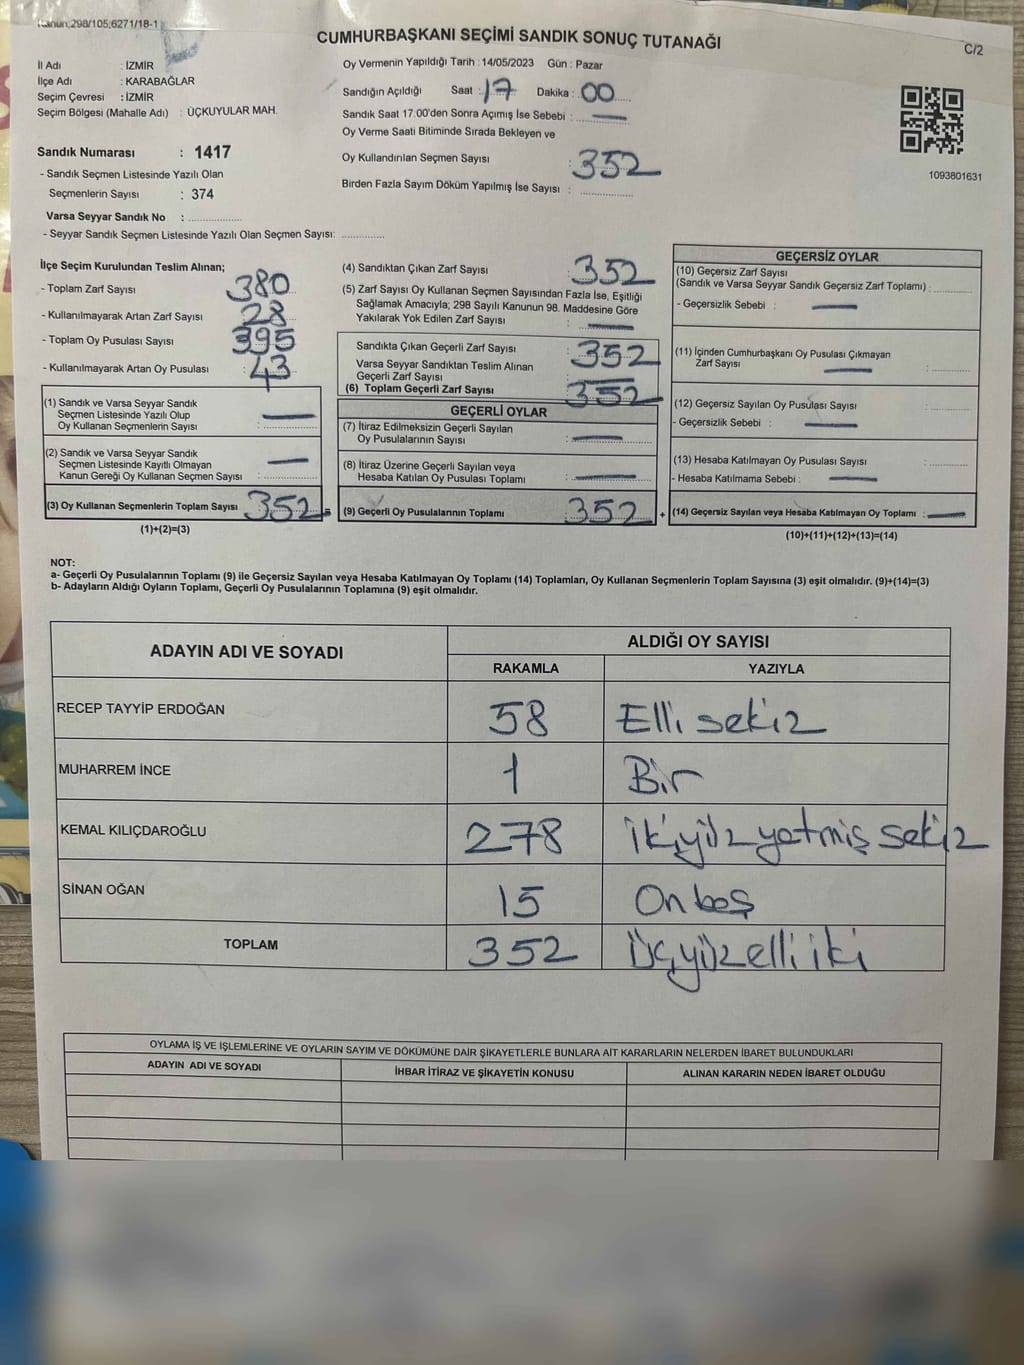 Kanun;298/105;6271/18-1
CUMHURBAŞKANI SEÇİMİ SANDIK SONUÇ TUTANAĞI
C/2
İl Adı : İZMİR
İlçe Adı : KARABAĞLAR
Seçim Çevresi : İZMİR
Seçim Bölgesi (Mahalle Adı) : ÜÇKUYULAR MAH.
Sandık Numarası : 1417
- Sandık Seçmen Listesinde Yazılı Olan
Seçmenlerin Sayısı : 374
Varsa Seyyar Sandık No : ..................
- Seyyar Sandık Seçmen Listesinde Yazılı Olan Seçmen Sayısı: ..............
Oy Vermenin Yapıldığı Tarih : 14/05/2023 Gün : Pazar
Sandığın Açıldığı Saat : 17 Dakika : 00
Sandık Saat 17:00'den Sonra Açımış İse Sebebi : —
Oy Verme Saati Bitiminde Sırada Bekleyen ve
Oy Kullandırılan Seçmen Sayısı : 352
Birden Fazla Sayım Döküm Yapılmış İse Sayısı : ..................
1093801631
İlçe Seçim Kurulundan Teslim Alınan;
- Toplam Zarf Sayısı 380
- Kullanılmayarak Artan Zarf Sayısı : 28
- Toplam Oy Pusulası Sayısı : 395
- Kullanılmayarak Artan Oy Pusulası : 43
(1) Sandık ve Varsa Seyyar Sandık
Seçmen Listesinde Yazılı Olup
Oy Kullanan Seçmenlerin Sayısı : —
(2) Sandık ve Varsa Seyyar Sandık
Seçmen Listesinde Kayıtlı Olmayan
Kanun Gereği Oy Kullanan Seçmen Sayısı : —
(3) Oy Kullanan Seçmenlerin Toplam Sayısı 352 =
(1)+(2)=(3)
(4) Sandıktan Çıkan Zarf Sayısı : 352
(5) Zarf Sayısı Oy Kullanan Seçmen Sayısından Fazla İse, Eşitliği
Sağlamak Amacıyla; 298 Sayılı Kanunun 98. Maddesine Göre
Yakılarak Yok Edilen Zarf Sayısı : —
Sandıkta Çıkan Geçerli Zarf Sayısı : 352
Varsa Seyyar Sandıktan Teslim Alınan
Geçerli Zarf Sayısı : —
(6) Toplam Geçerli Zarf Sayısı : 352
GEÇERLİ OYLAR
(7) İtiraz Edilmeksizin Geçerli Sayılan
Oy Pusulalarının Sayısı : —
(8) İtiraz Üzerine Geçerli Sayılan veya
Hesaba Katılan Oy Pusulası Toplamı : —
(9) Geçerli Oy Pusulalarının Toplamı : 352 +
GEÇERSİZ OYLAR
(10) Geçersiz Zarf Sayısı
(Sandık ve Varsa Seyyar Sandık Geçersiz Zarf Toplamı) : ............
- Geçersizlik Sebebi : —
(11) İçinden Cumhurbaşkanı Oy Pusulası Çıkmayan
Zarf Sayısı — : ............
(12) Geçersiz Sayılan Oy Pusulası Sayısı : ............
- Geçersizlik Sebebi : —
(13) Hesaba Katılmayan Oy Pusulası Sayısı : ............
- Hesaba Katılmama Sebebi : —
(14) Geçersiz Sayılan veya Hesaba Katılmayan Oy Toplamı : —
(10)+(11)+(12)+(13)=(14)
NOT:
a- Geçerli Oy Pusulalarının Toplamı (9) ile Geçersiz Sayılan veya Hesaba Katılmayan Oy Toplamı (14) Toplamları, Oy Kullanan Seçmenlerin Toplam Sayısına (3) eşit olmalıdır. (9)+(14)=(3)
b- Adayların Aldığı Oyların Toplamı, Geçerli Oy Pusulalarının Toplamına (9) eşit olmalıdır.
ADAYIN ADI VE SOYADI ALDIĞI OY SAYISI
RAKAMLA YAZIYLA
RECEP TAYYİP ERDOĞAN 58 Elli sekiz
MUHARREM İNCE 1 Bir
KEMAL KILIÇDAROĞLU 278 İkiyüz yetmiş sekiz
SİNAN OĞAN 15 On beş
TOPLAM 352 Üçyüzelli iki
OYLAMA İŞ VE İŞLEMLERİNE VE OYLARIN SAYIM VE DÖKÜMÜNE DAİR ŞİKAYETLERLE BUNLARA AİT KARARLARIN NELERDEN İBARET BULUNDUKLARI
ADAYIN ADI VE SOYADI İHBAR İTİRAZ VE ŞİKAYETİN KONUSU ALINAN KARARIN NEDEN İBARET OLDUĞU